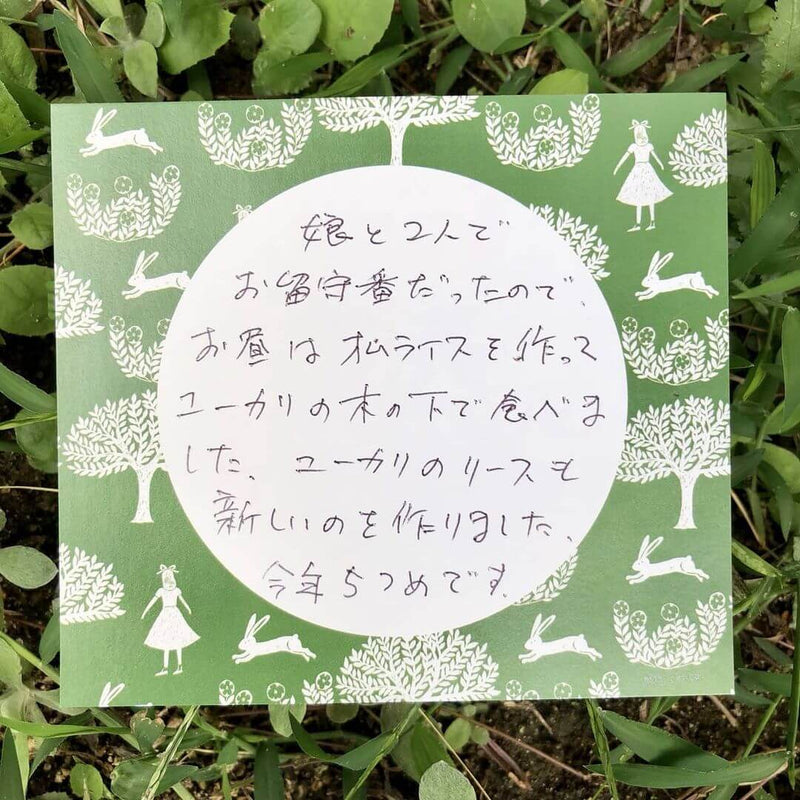 娘と2人で
お留守番だったので、
お昼はオムライスを作って
ユーカリの木の下で食べま
した。ユーカリのリースも
新しいのを作りました。
今年5つめです。